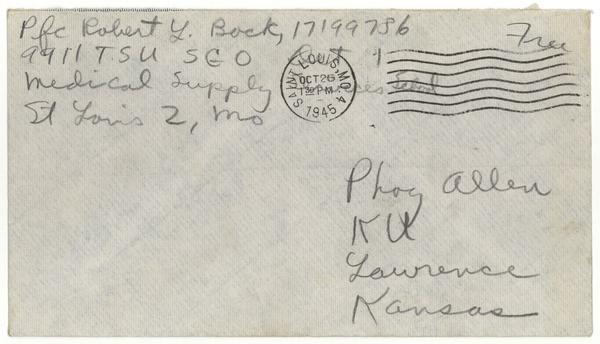 Pfc Robert Y. Bock, 17199786
9911 TSU SGO Det 1
Free
Medical Supply Services School
St Louis 2, Mo
SAINT LOUIS, MO. 4
OCT 26
PM
1945
Phog Allen
KU
Lawrence
Kansas